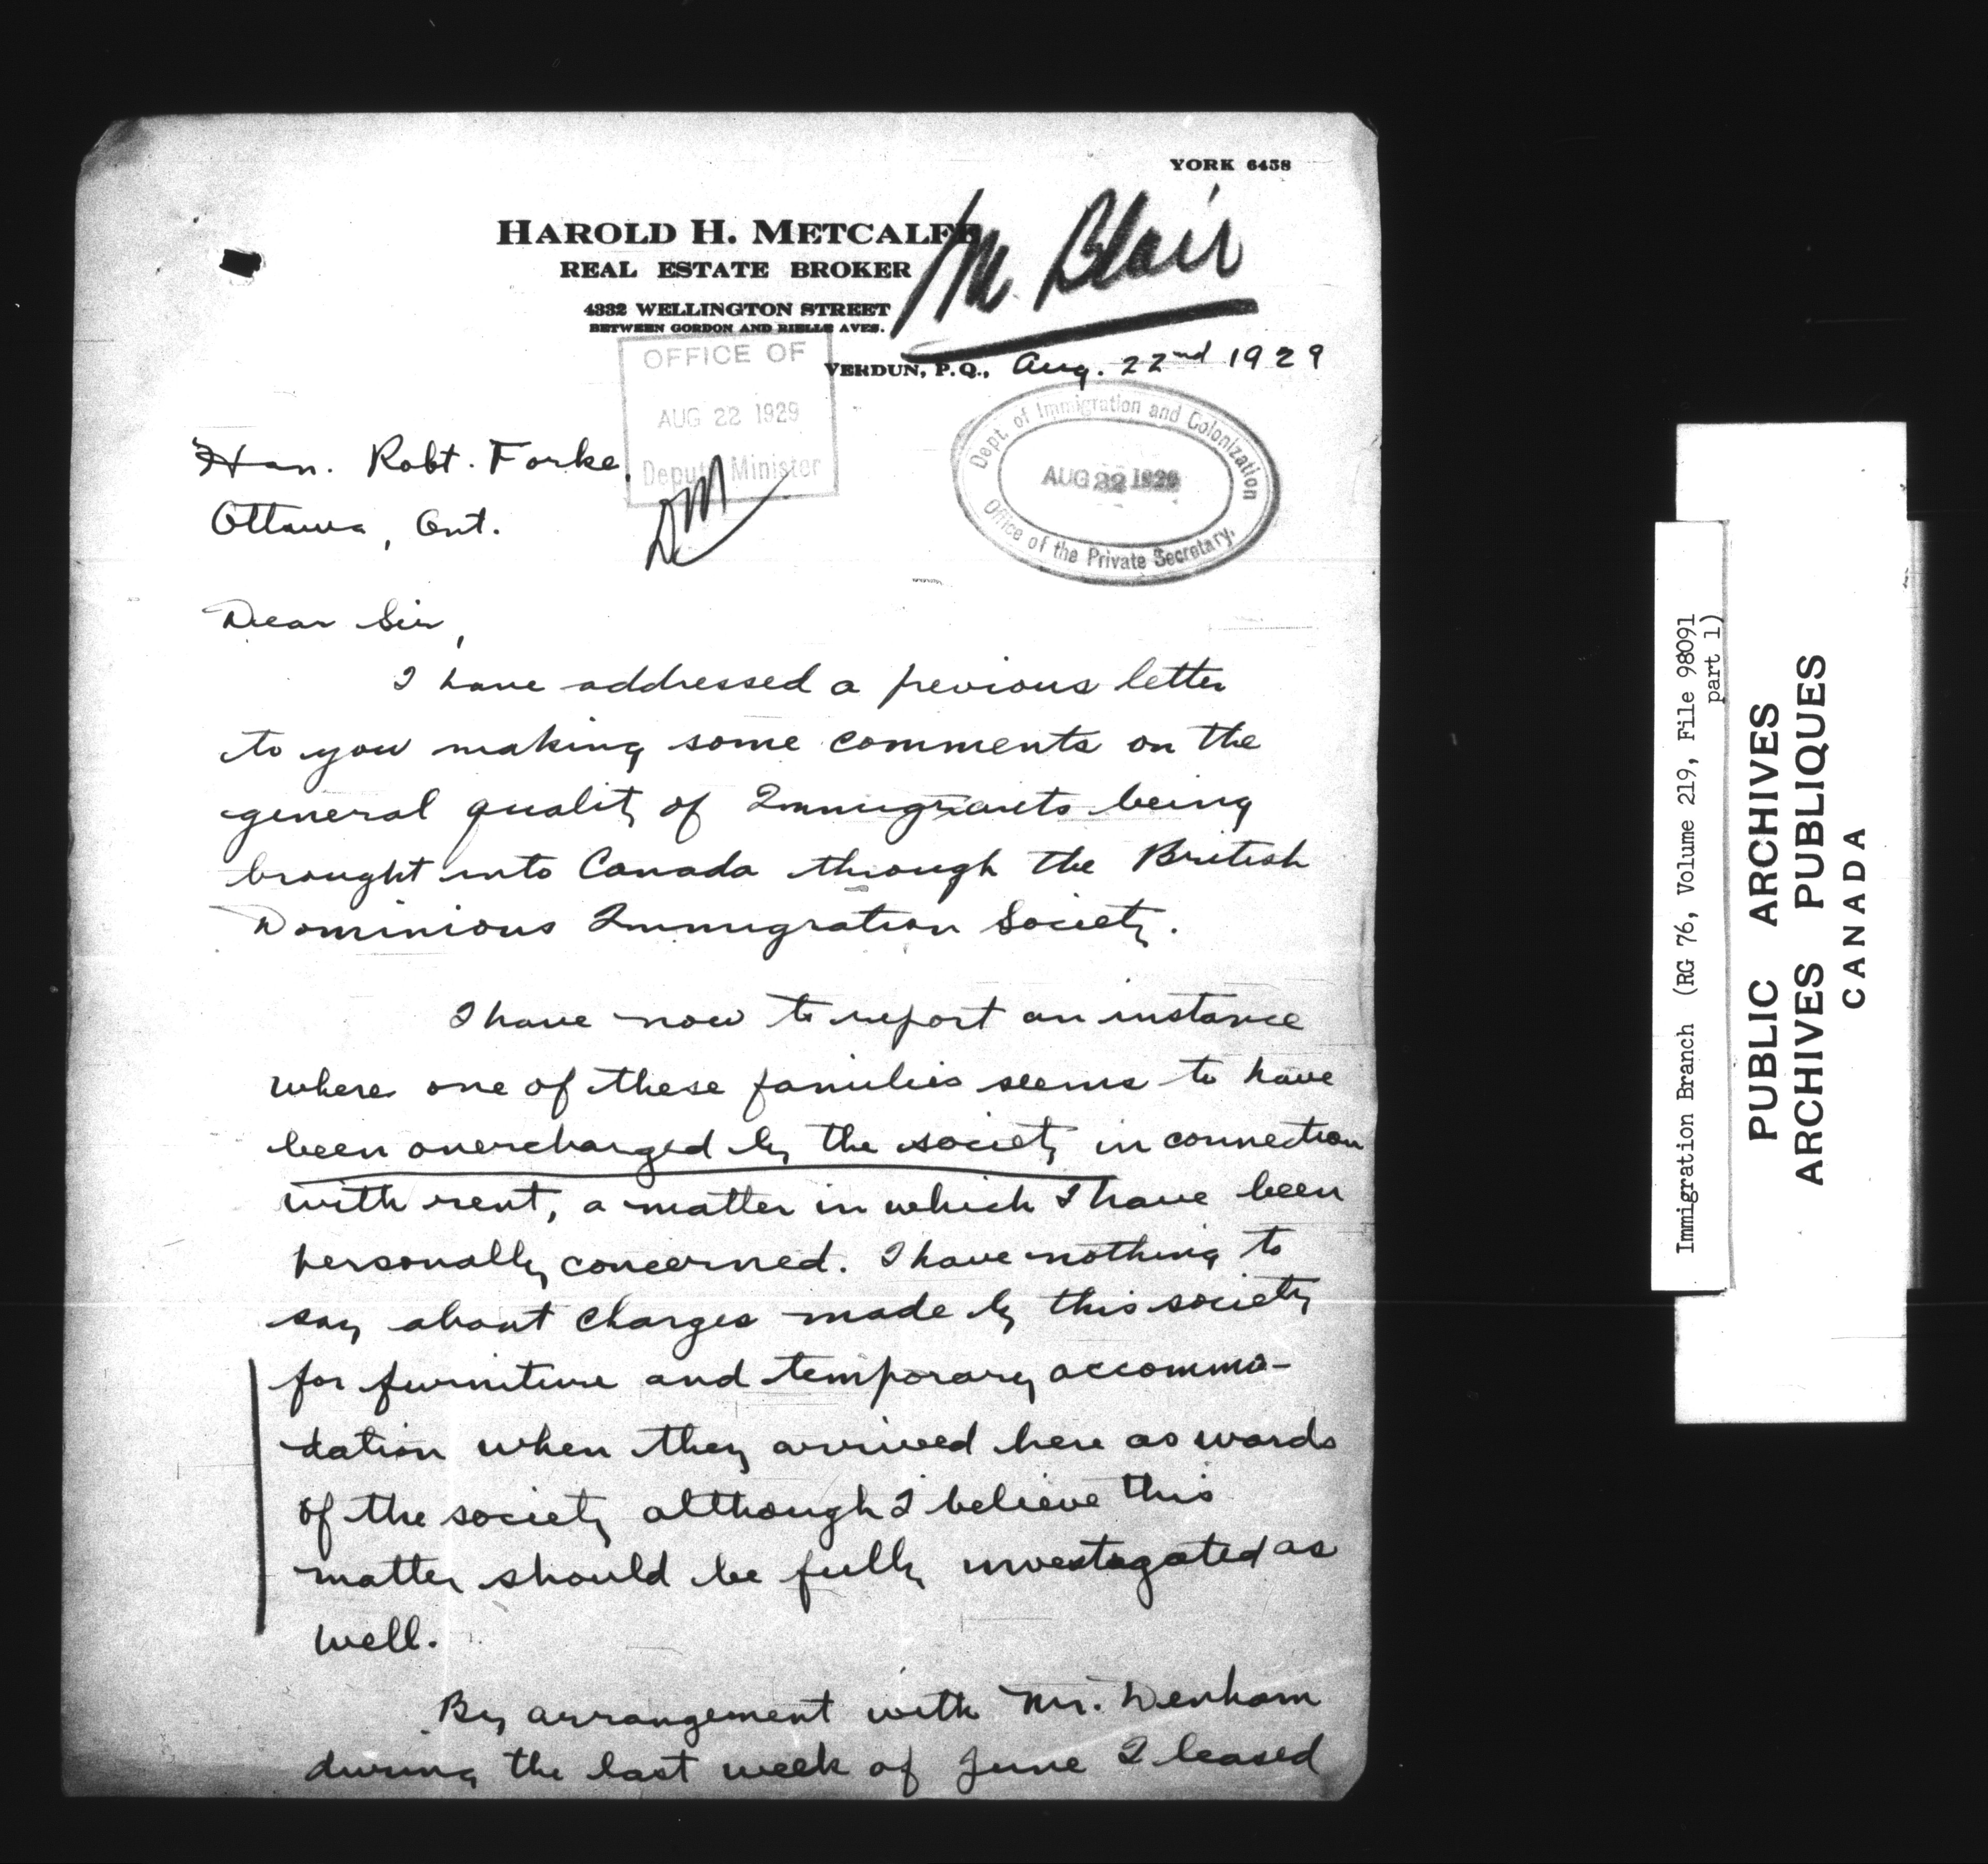 YORK 6458
HAROLD H. METCALFE
REAL ESTATE BROKER
4332 WELLINGTON STREET
BETWEEN GORDON AND RIELLE AVES.
M. Blair
VERDUN, P.Q., Aug. 22nd 1929
OFFICE OF
AUG 22 1929
Deputy Minister
Dept. of Immigration and Colonization
AUG 22 1929
Office of the Private Secretary.
Hon. Robt. Forke,
Ottawa, Ont.
Dear Sir,
I have addressed a pevious letter
to you making some comments on the
general quality of Immigrants being
brought into Canada through the British
Dominions Immigration Society.
I have now to report an instance
where one of these families seems to have
been overcharged by the society in connection
with rent, a matter in which I have been
personally concerned. I have nothing to
say about charges made by this society
for furniture and temporary accommo-
dation when they arrived here as wards
of the society although I believe this
matter should be fully investagated as
well.
By arrangement with Mr. Denham
during the last week of June I leased
Immigration Branch (RG 76, Volume 219, File 98091
part 1)
PUBLIC ARCHIVES
ARCHIVES PUBLIQUES
CANADA